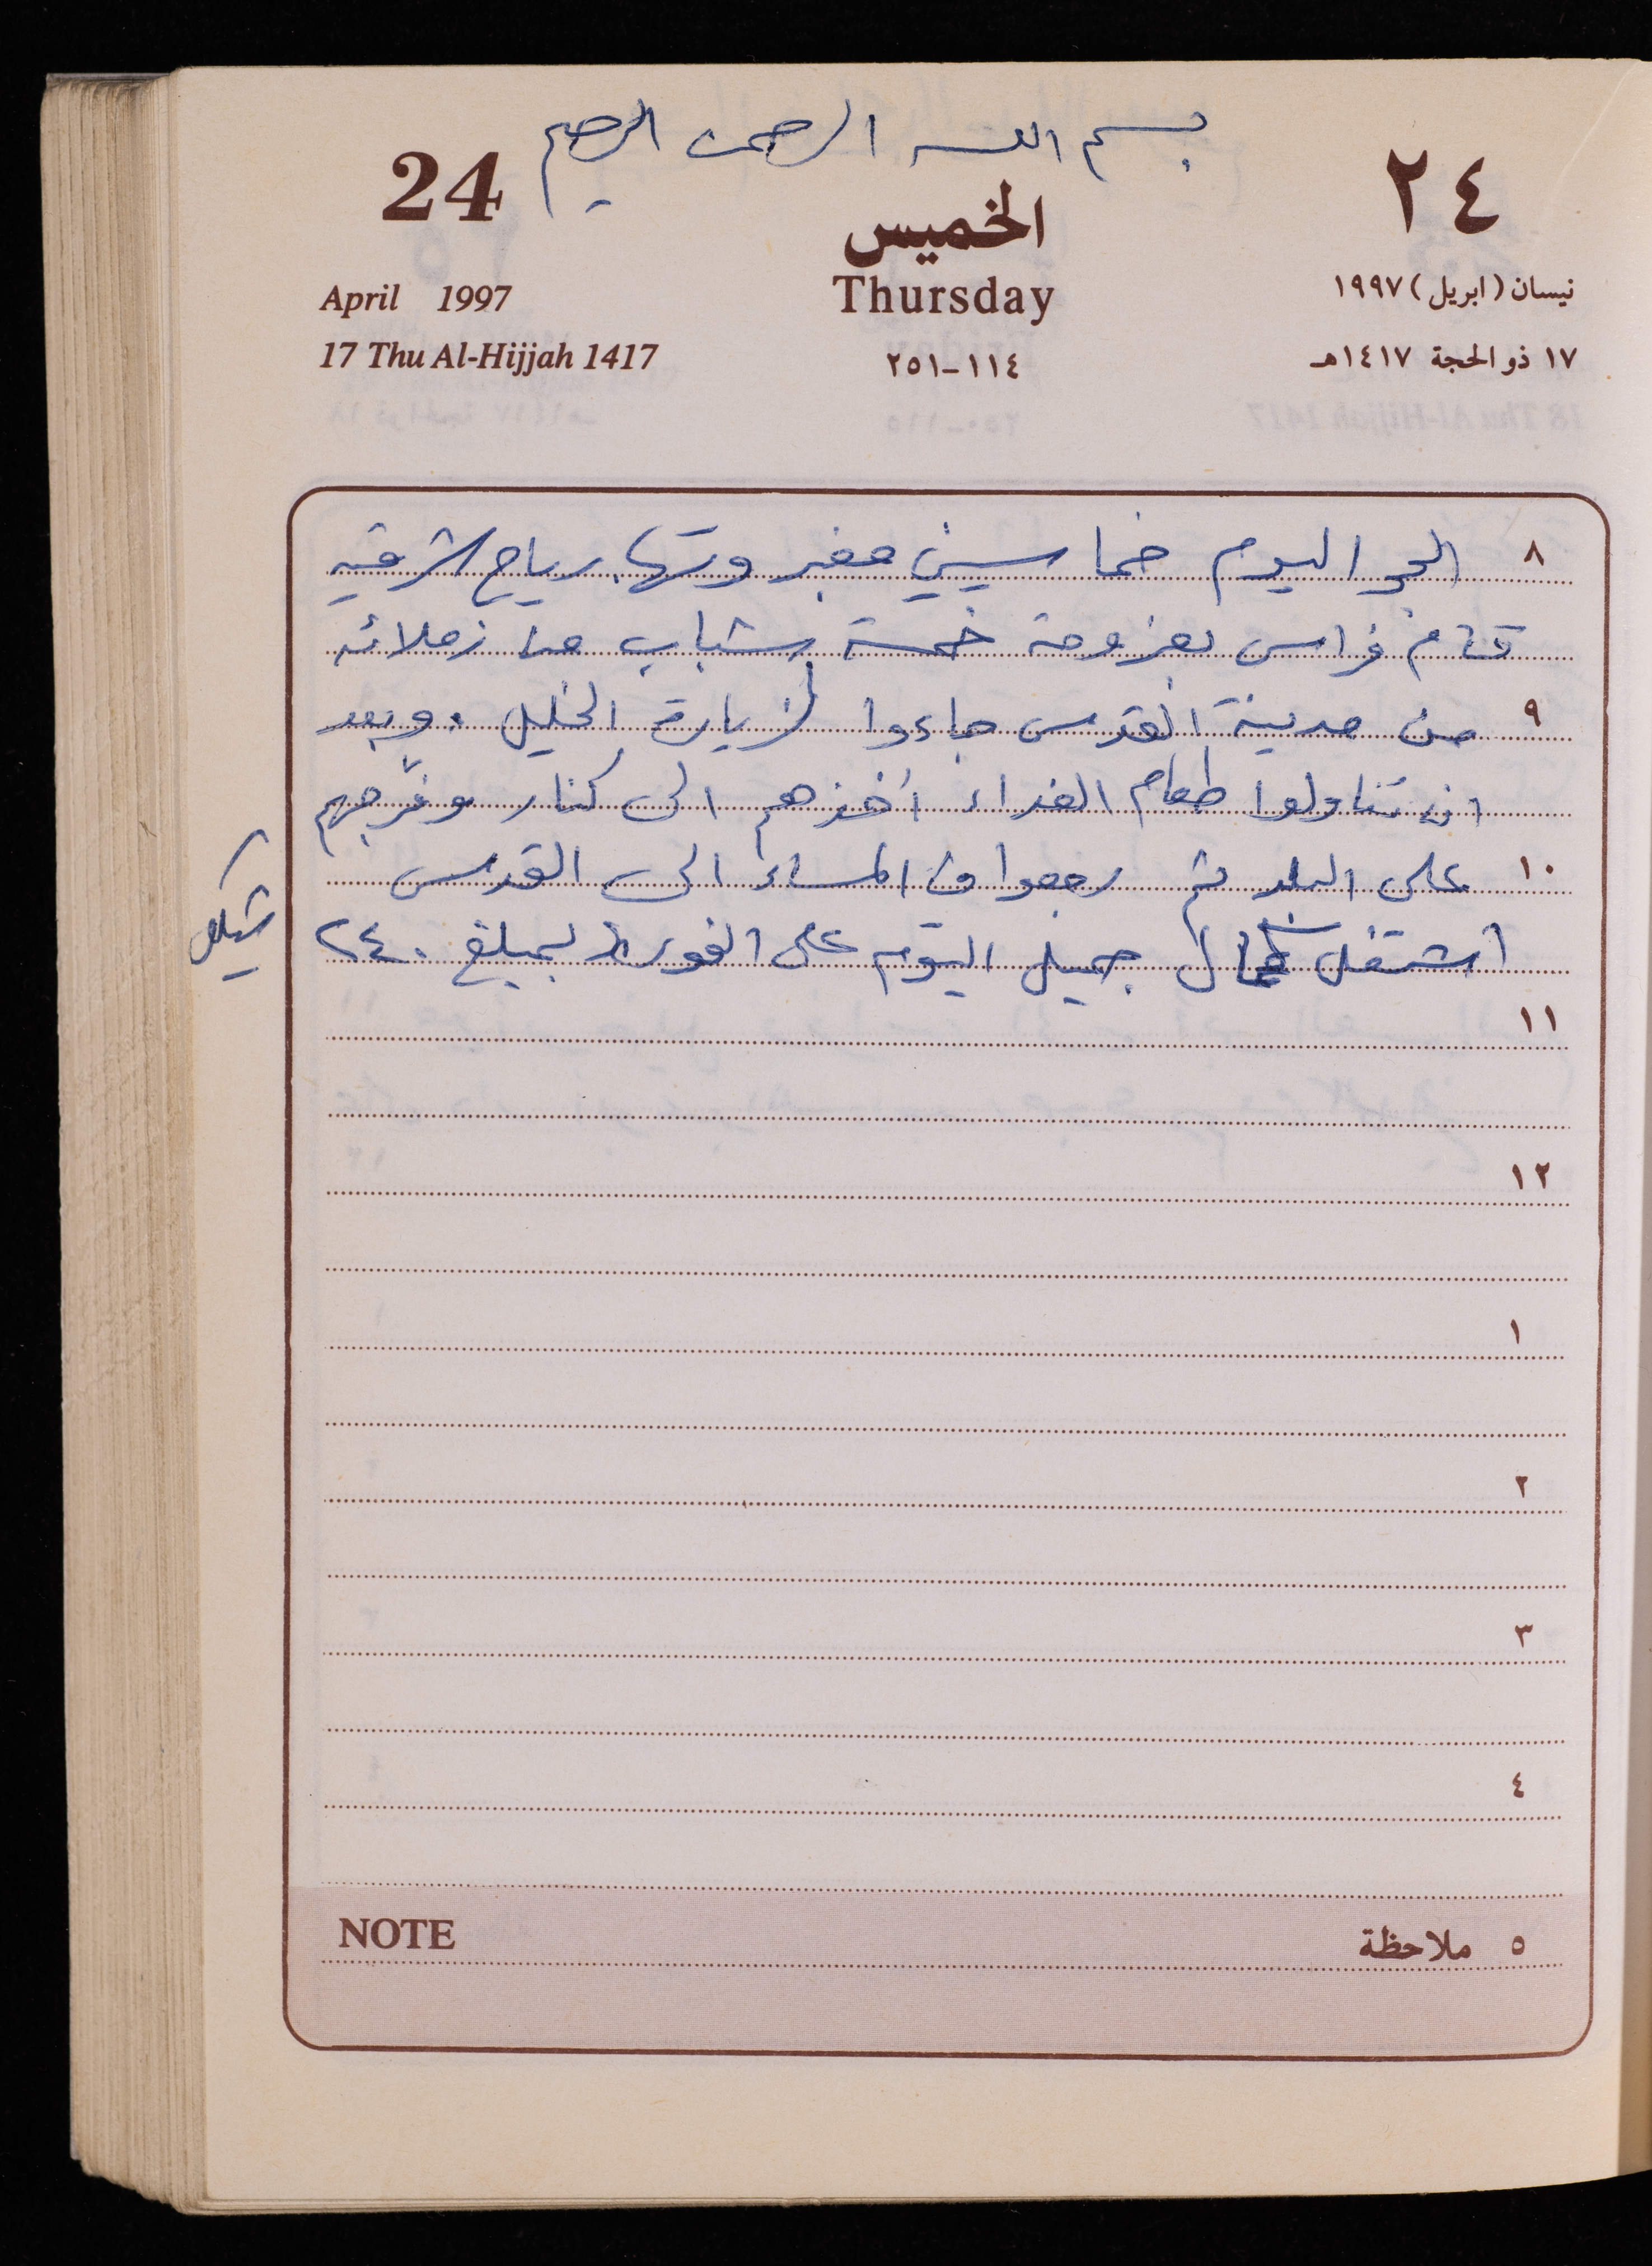 بسم الله الرحمن الرحيم
24
٢٤
الخميس
Thursday
April 1997
نيسان (ابريل) ١٩٩٧
17 Thu Al-Hijjah 1417
١١٤-٢٥١
١٧ ذو الحجة ١٤١٧هـ
٨ الجو اليوم خماسيني مغبر رياح شرقيه
قام فراس بعزومة خمسة شباب من زملائه
٩ من مدينة القدس جاءوا لزيارة الخليل . وبعد
ان تناولوا طعام الغداء أخذهم الى كنار وفرجهم
١٠ على البلد ثم رجعوا في المساء الى القدس
اشتغل جميل اليوم على الفورد بمبلغ ٢٤٠
شيكل
١١
١٢
١
٢
٣
٤
NOTE
٥ ملاحظة